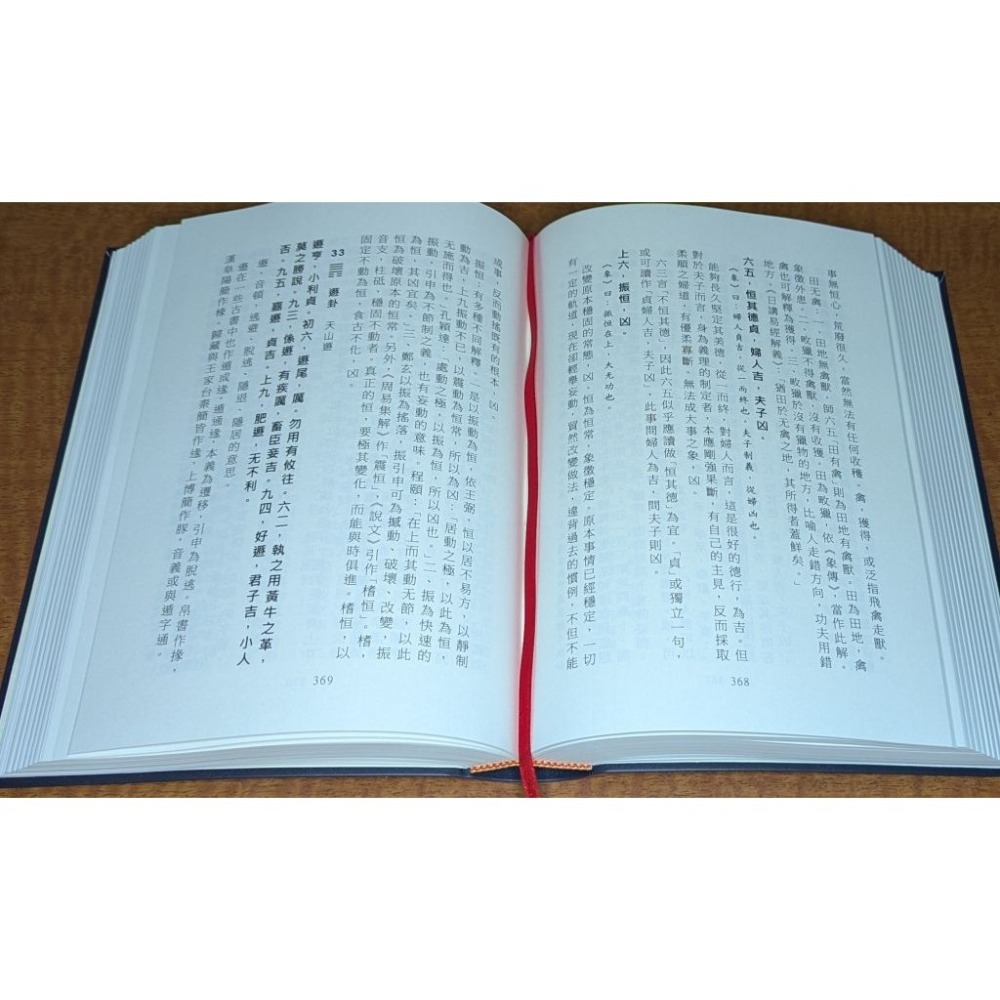 事無恒心，荒廢很久，當然無法有任何收穫。禽，獲得，或泛指飛禽走獸。
田无禽：一、田地無禽獸，師六五「田有禽」則為田地有禽獸。田為田地，禽
象徵外患。二、畋獵不得禽獸，沒有收獲。田為畋獵，依《象傳》，當作此解。
禽也可解釋為獲得。三、畋獵於沒有獵物的地方，比喻人走錯方向，功夫用錯
地方。《日講易經解義》：「猶田於无禽之地，其所得者蓋鮮矣。」
六五，恒其德貞，婦人吉，夫子凶。
《象》曰：婦人貞吉，從一而終也，夫子制義，從婦凶也。
能夠長久堅定其美德，從一而終，對婦人而言，這是很好的德行，為吉。但
對於夫子而言，身為義理的制定者，本應剛強果斷，有自己的主見，反而採取
柔順之婦道，有優柔寡斷、無法成大事之象，凶。
六三言「不恒其德」，因此六五似乎應讀做「恒其德」為宜。「貞」或獨立一句，
或可讀作「貞婦人吉，夫子凶」，此事問婦人為吉，問夫子則凶。
上六，振恒，凶。
《象》曰：振恒在上，大无功也。
改變原本穩固的常態，凶。恒為恒常，象徵穩定。原本事情已經穩定，一切
有一定的軌道，現在卻輕舉妄動，貿然改變做法，違背過去的慣例，不但不能
368
成事，反而動搖既有的根本，凶。
振恒：有多種不同解釋，一是以振動為恒，依王弼，恒以居不易方，以靜制
動為吉，上九振動不已，以震動為恒常，所以為凶：「居動之極，以此為恒，
无施而得也。」孔穎達：「處動之極，以振為恒，所以凶也。」二、振為快速的
振動，引申為不節制之義，也有妄動的意味。程頤：「在上而其動无節，以此
為恒，其凶宜矣。」三、鄭玄以振為搖落，振引申可為撼動、破壞、改變，振
恒為破壞原本的恒常。另外，《周易集解》作「震恒」，《說文》引作「榰恒」。榰，
音支，柱砥，穩固不動者。真正的恒，要極其變化，而能與時俱進。榰恒，以
固定不動為恒，食古不化，凶。
33 ䷠ 遯卦 天山遯
遯亨，小利貞。初六，遯尾，厲。勿用有攸往。六二，執之用黃牛之革，
莫之勝說。九三，係遯，有疾厲，畜臣妾吉。九四，好遯，君子吉，小人
否。九五，嘉遯，貞吉。上九，肥遯，无不利。
遯，音頓，逃遯、脫逃、隱遯、隱居的意思。
遯在一些古書中也作遁或逯。遁通遯，本義為遷移，引申為脫逃。帛書作掾，
漢阜陽簡作椽，歸藏與王家台秦簡皆作逯，上博簡作豚，音義或與遁字通。
369